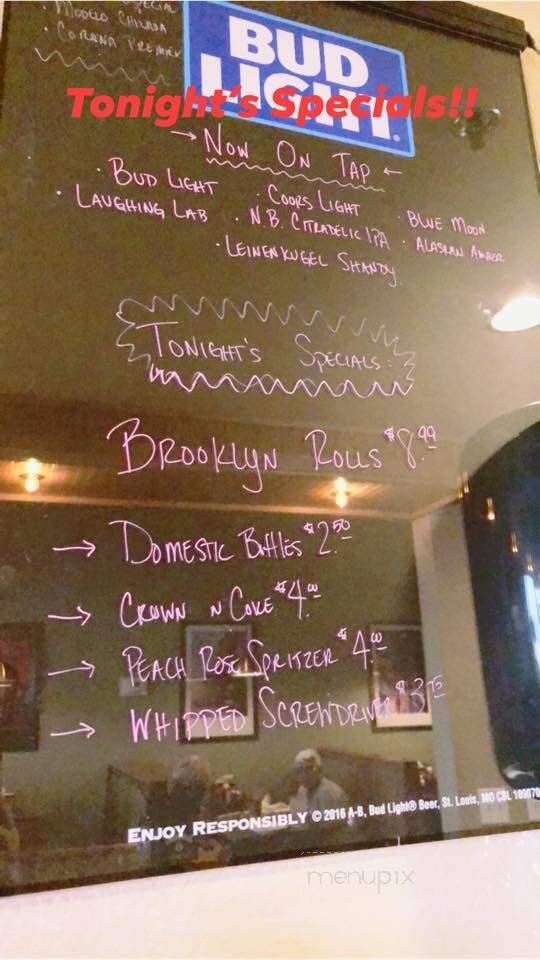 · MODELO CHILADA
· CORONA PREMIER
BUD
LIGHT.
Tonight's Specials!!
→ NOW ON TAP ←
· BUD LIGHT · COORS LIGHT · BLUE MOON
· LAUGHING LAB · N.B. CITRADELIC IPA · ALASKAN AMBER
· LEINENKUGEL SHANDY
TONIGHT'S SPECIALS:
BROOKLYN ROLLS $8.99
→ DOMESTIC BOTTLES $2.50
→ CROWN N COKE $4.00
→ PEACH ROSE SPRITZER $4.00
→ WHIPPED SCREWDRIVER $3.75
ENJOY RESPONSIBLY © 2016 A-B, Bud Light® Beer, St. Louis, MO
menupix